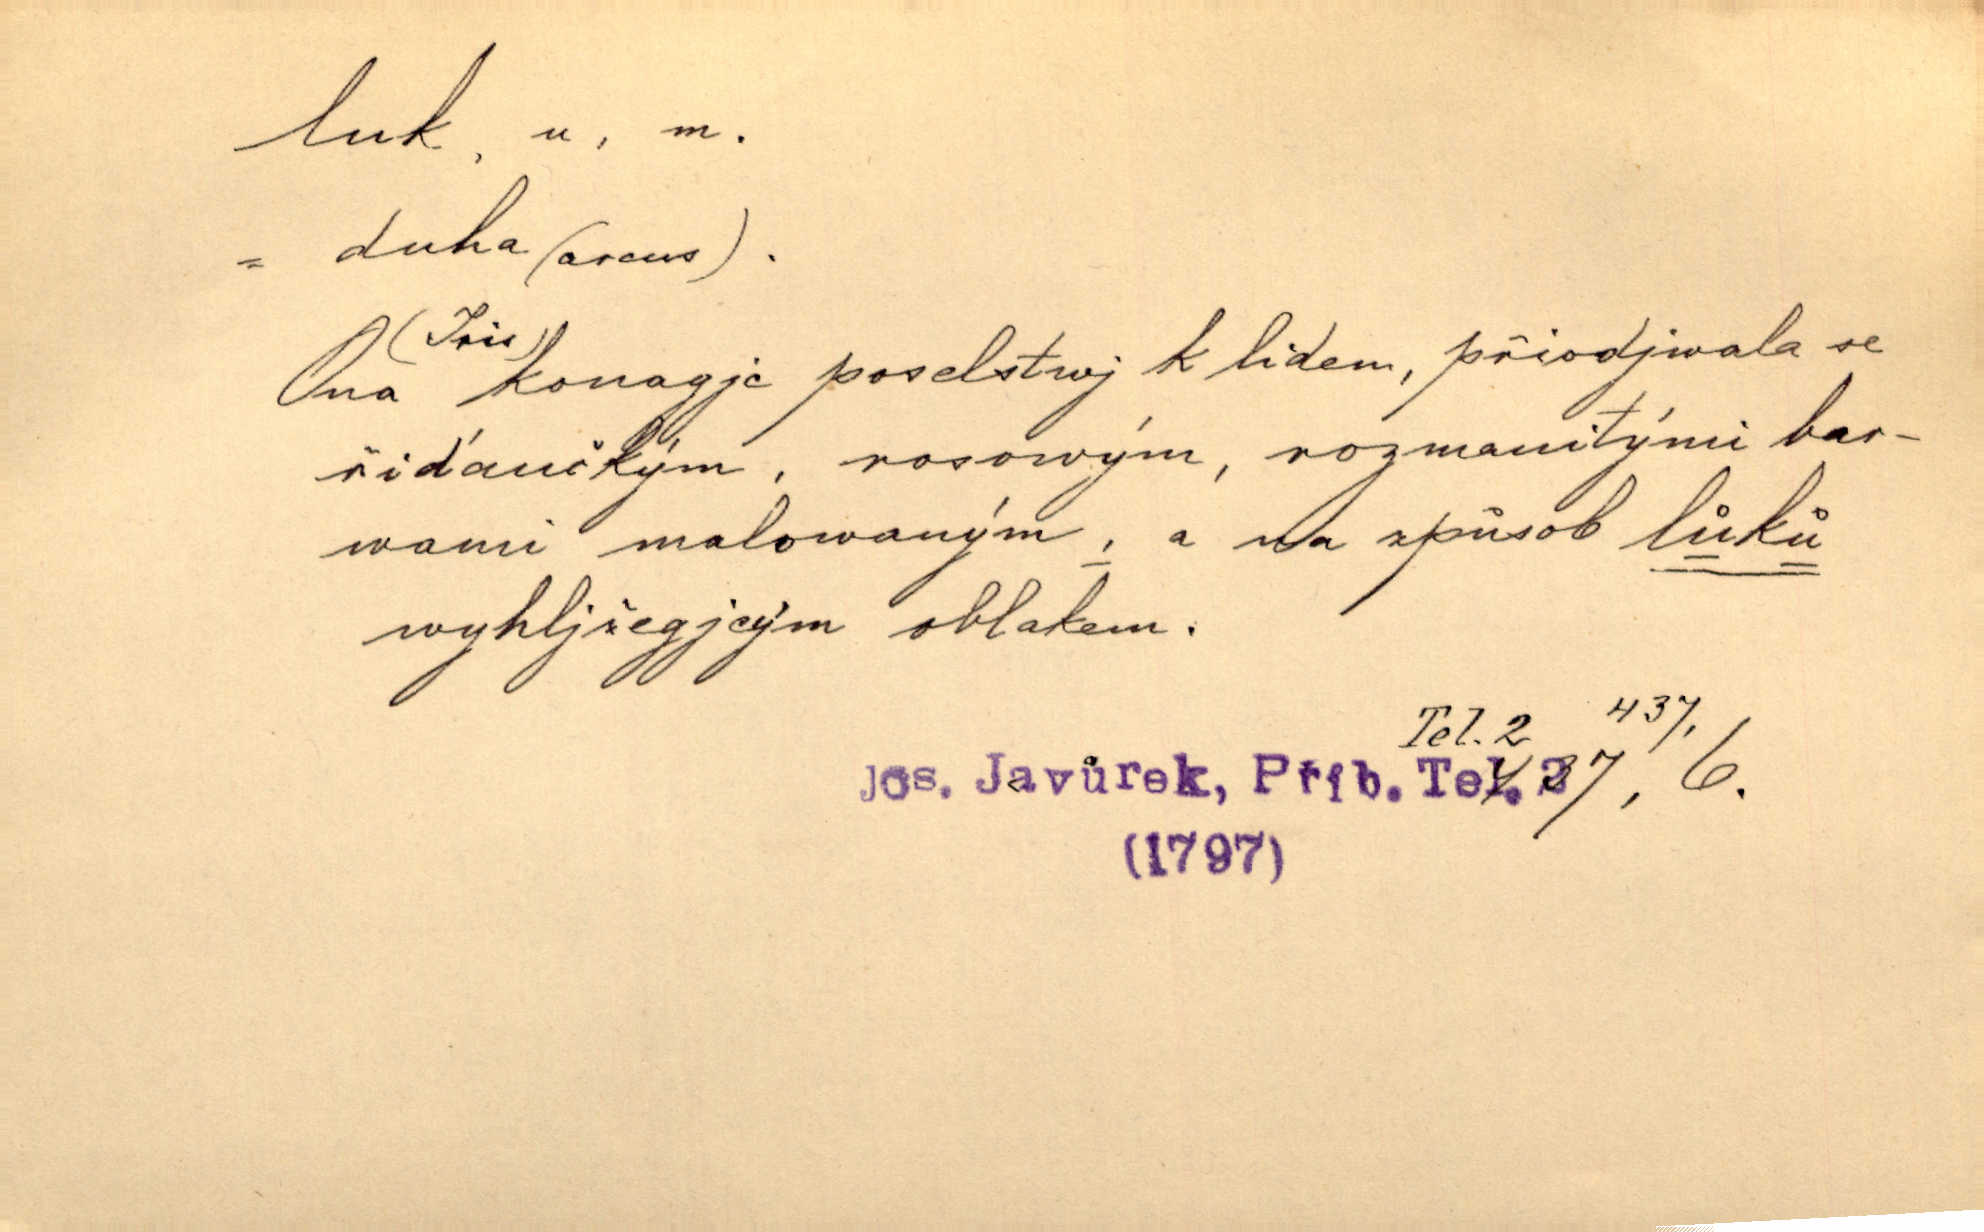 luk, u, m.
= duha (arcus).
(Iris)
Ona konagjc poselstwj k lidem, přiodjwala se
řiďaučkým, rosowým, rozmanitými bar-
wami malowaným, a na způsob lůků
wyhljžegjcým oblakem.
Tel. 2 437,
Jos. Javůrek, Příb. Tel. 2 437, 6.
(1797)